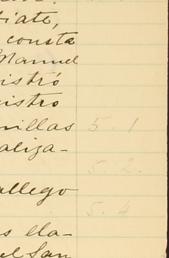 tiate,
consta
Manuel
istró
istro
nillas 5.1
aliza-
5.2.
allego
5.4
s ela-
el San